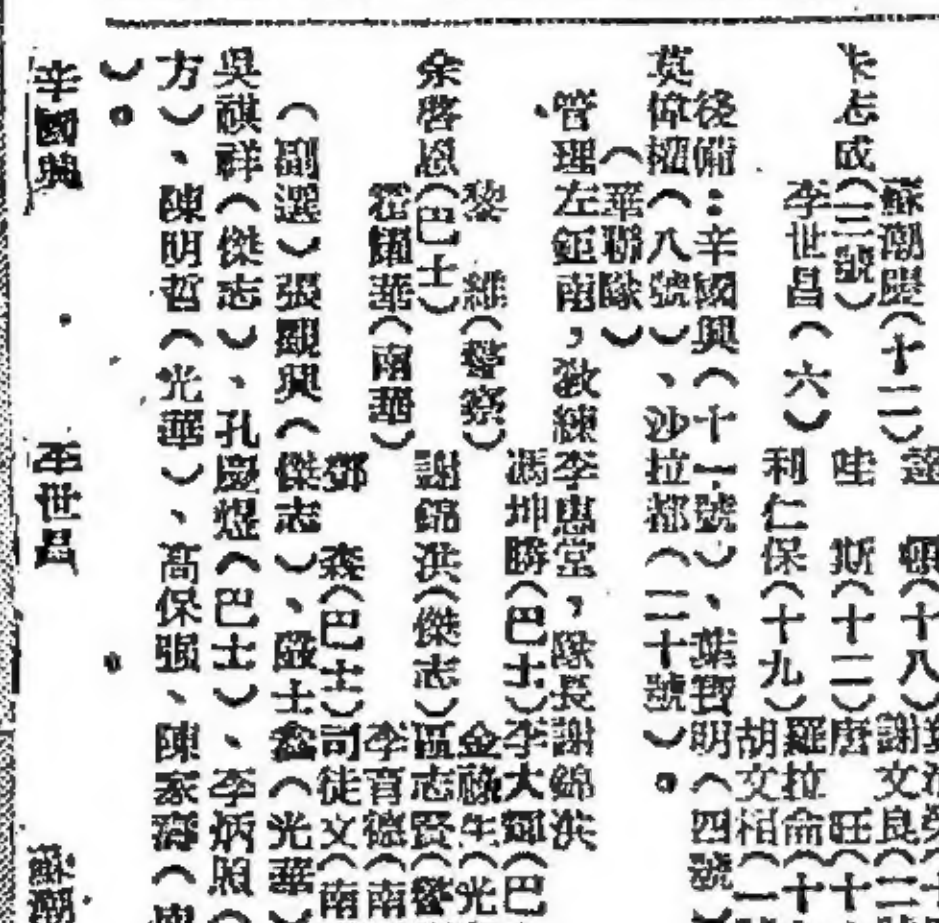 卡志成(三號)
蘇潮慶(十二)
李世昌(六)
利仁保(十九)
哇 斯(十二)
頓(十八)
謝文良(二
唐 旺(十
羅拉侖(十
胡文栢(一
後備:辛國興(十一號)、葉寶明(四號
莫偉權(八號)、沙拉都(二十號)。
(華聯隊)
管理左鉅南,敎練李惠堂,隊長謝錦洪
余啓恩(巴士)
黎 維(警察)
霍耀華(南華)
馮坤勝(巴士)
謝錦洪(傑志)
鄧 森(巴士)
李大輝(巴
金祿生(光
區志賢(警
李育德(南
司徒文(南
(副選)張觀興(傑志)、嚴士鑫(光華)
吳祺祥(傑志)、孔慶煜(巴士)、李炳照(
方)、陳明哲(光華)、高保強、陳家齊(
)。
辛國興
李世昌
蘇潮